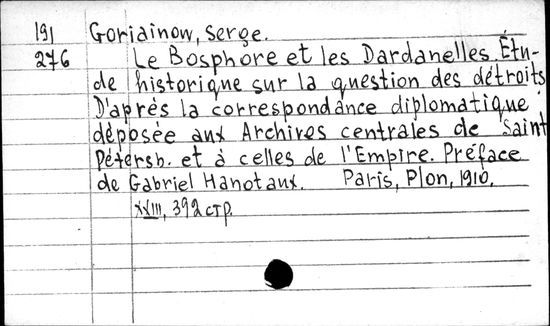 191 Goriainow, Serge.
276 Le Bosphore et les Dardanelles. Étu-
de historique sur la question des détroits
D'après la correspondance diplomatique
déposée aux Archives centrales de Saint
Pétersb. et à celles de l'Empire. Préface
de Gabriel Hanotaux. Paris, Plon, 1910.
XXIII, 392 стр.